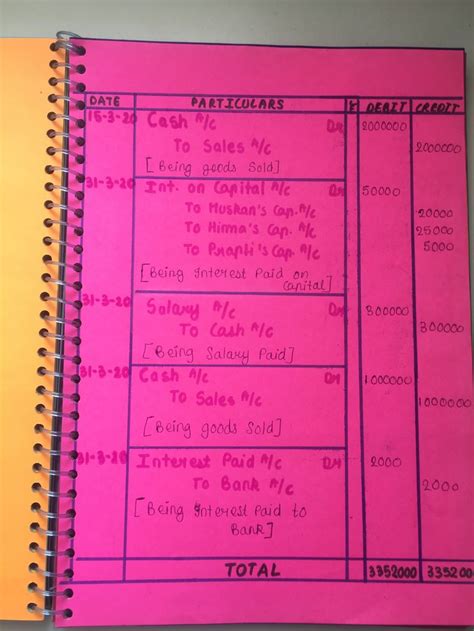 DATE PARTICULARS DEBIT CREDIT
15-3-20 Cash A/c Dr 2000000
To Sales A/c 2000000
[Being goods Sold]
31-3-20 Int. on Capital A/c Dr 50000
To Muskan's Cap. A/c 20000
To Hinna's Cap. A/c 25000
To Prapti's Cap. A/c 5000
[Being Interest Paid on
Capital]
31-3-20 Salary A/c Dr 300000
To Cash A/c 300000
[Being Salary Paid]
31-3-20 Cash A/c Dr 1000000
To Sales A/c 1000000
[Being goods Sold]
31-3-20 Interest Paid A/c Dr 2000
To Bank A/c 2000
[Being Interest Paid to
Bank]
TOTAL 3352000 335200